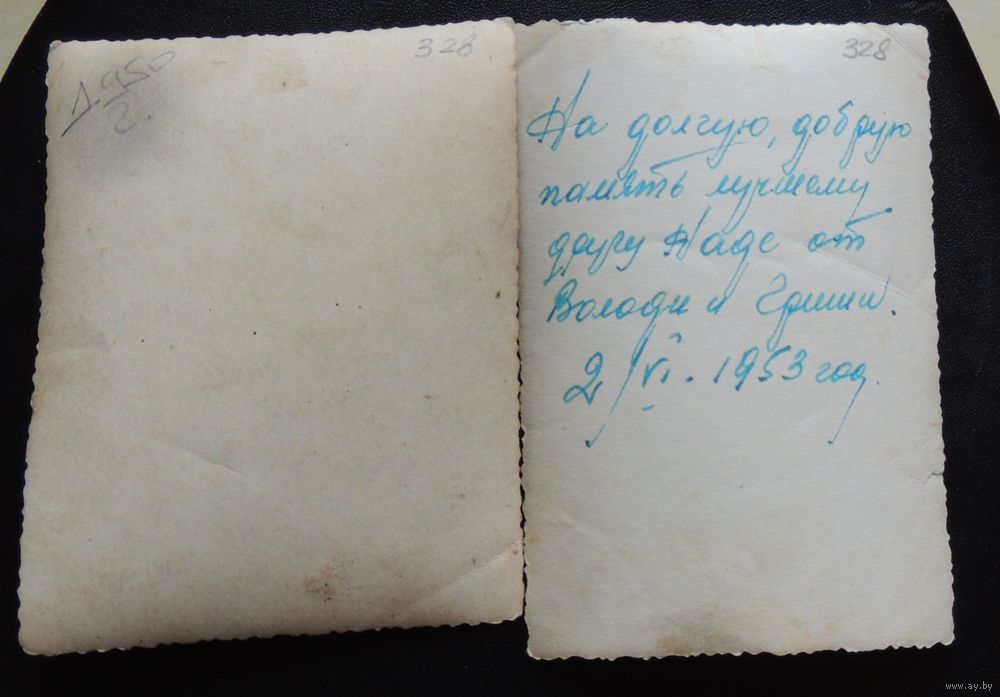 326
328
На долгую, добрую
память лучшему
другу Наде от
Володи и Гриши.
2/VI. 1953 год.
www.ay.by